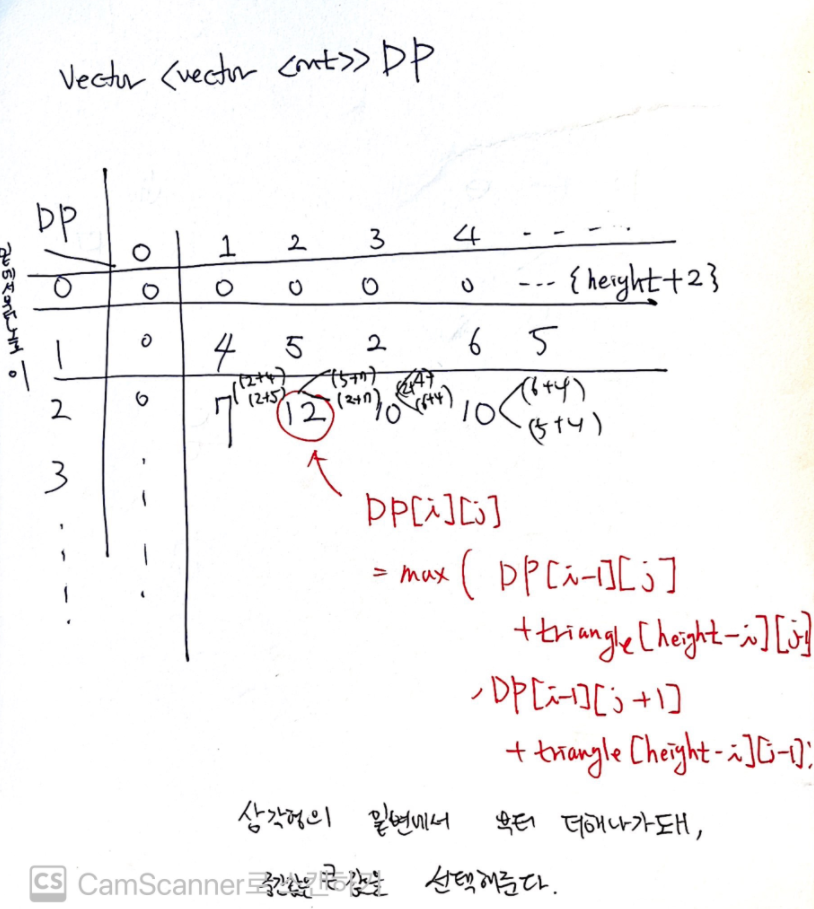 Vector <vector <int>> DP
DP 0 1 2 3 4 - - - -
0 0 0 0 0 0 --- {height+2}
1 0 4 5 2 6 5
2 0 7 (2+4) (2+5) 12 (5+7) (2+7) 10 (2+4) (6+4) 10 (6+4) (5+4)
3
DP[i][j]
= max( DP[i-1][j]
+triangle[height-i][j]
, DP[i-1][j+1]
+ triangle[height-i][j-1];
삼각형의 밑변에서 부터 더해나가되,
큰 값을 선택해준다.
CS CamScanner로 스캔하기